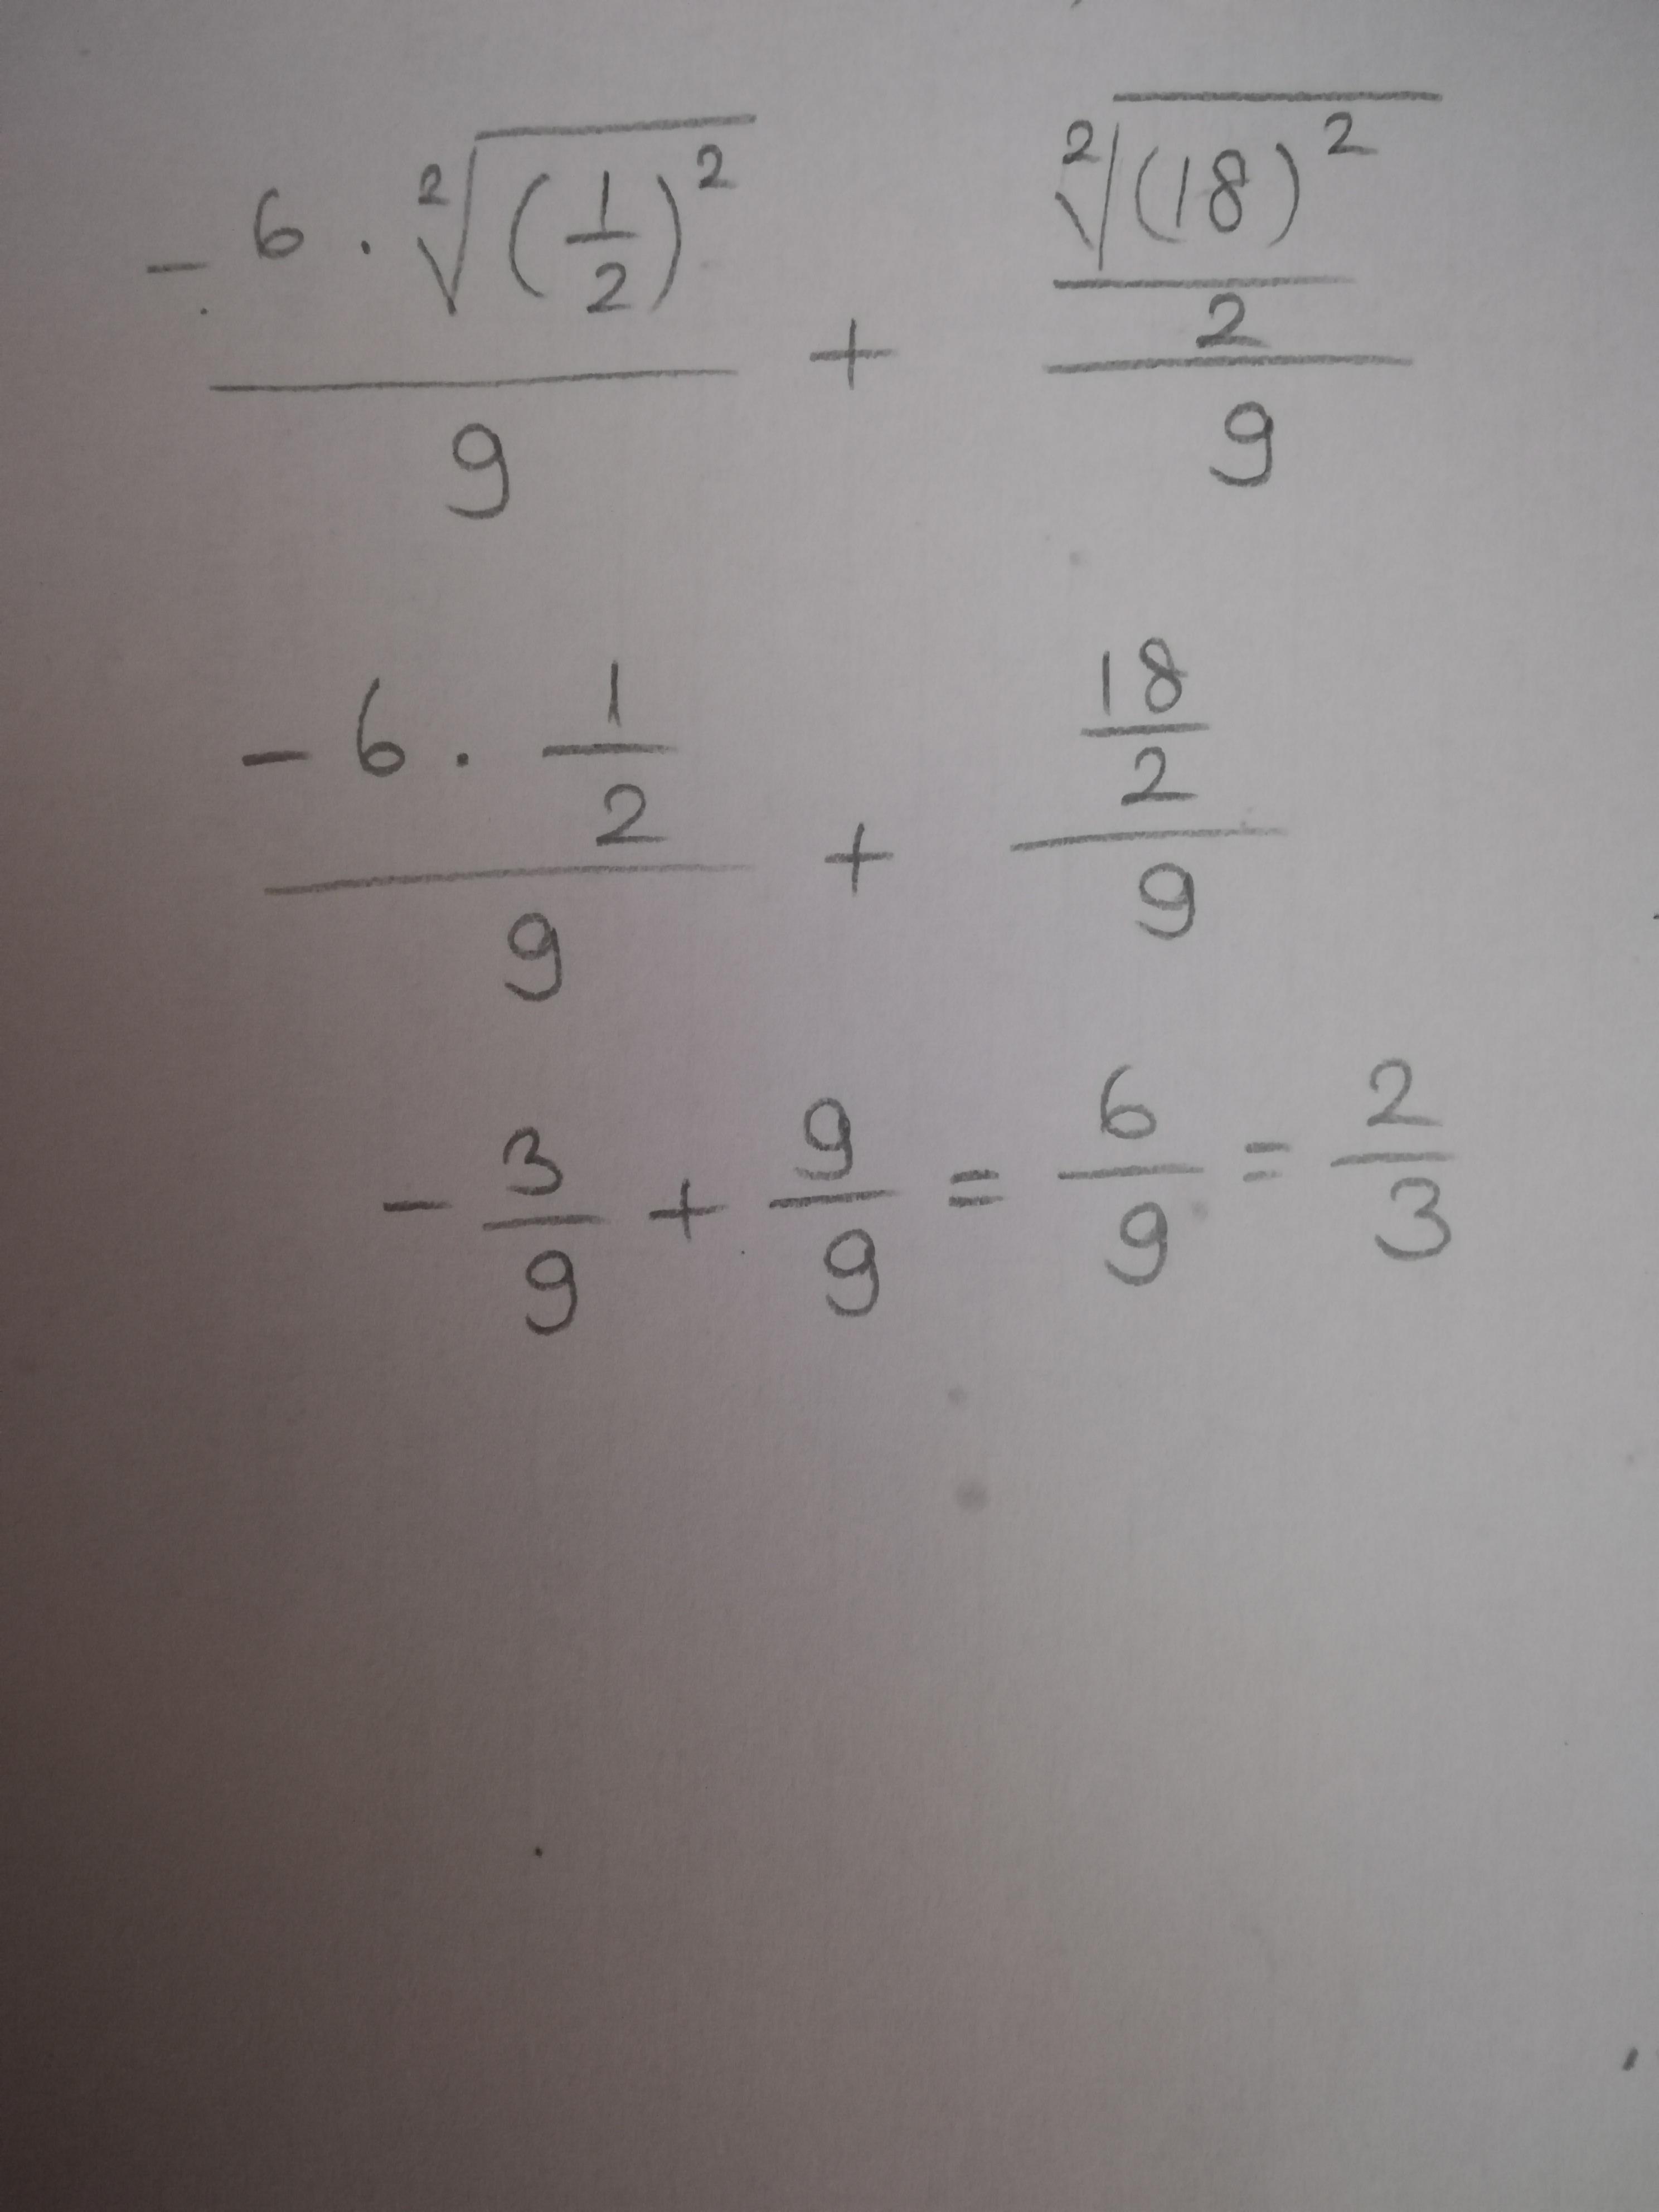 -6 · ²√(1/2)² / 9 + ²√(18)² / 2 / 9
-6 · 1/2 / 9 + 18/2 / 9
- 3/9 + 9/9 = 6/9 = 2/3